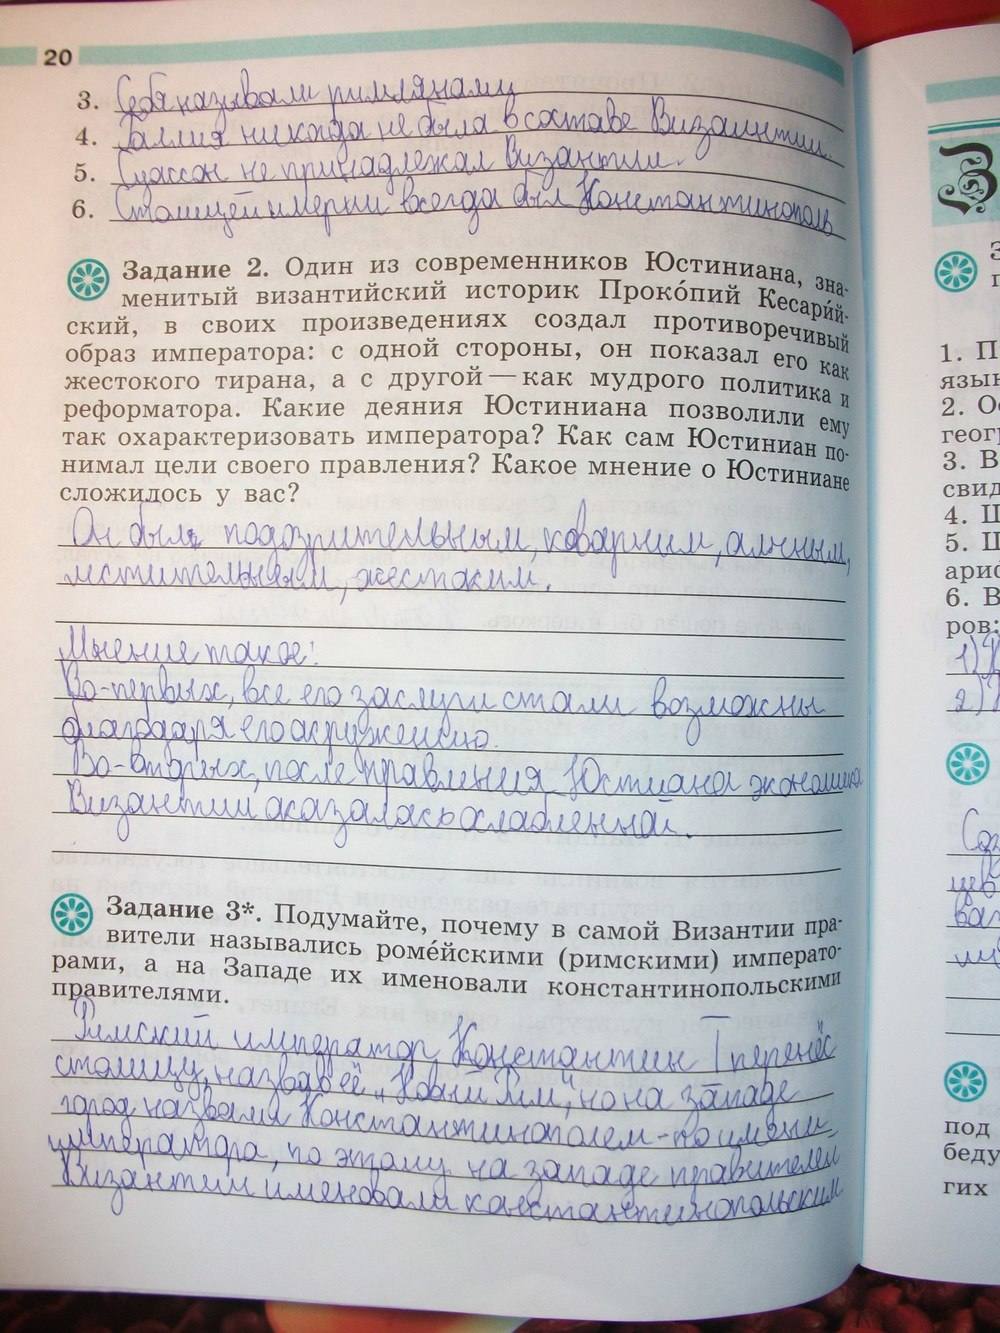 20
3. Себя называли римлянами
4. Галлия никогда не была в составе Византии.
5. Суассон не принадлежал Византии.
6. Столицей имерии всегда был Константинополь
Задание 2. Один из современников Юстиниана, зна-
менитый византийский историк Проко́пий Кесари́й-
ский, в своих произведениях создал противоречивый
образ императора: с одной стороны, он показал его как
жестокого тирана, а с другой — как мудрого политика и
реформатора. Какие деяния Юстиниана позволили ему
так охарактеризовать императора? Как сам Юстиниан по-
нимал цели своего правления? Какое мнение о Юстиниане
сложилось у вас?
Он был подозрительным, коварним, алчным,
мстительным, жестоким.
Мнение такое:
Во-первых, все его заслуги стали возможны
благодаря его окружению.
Во-вторых, после правления Юстиана экономика
Византии оказалась ослабленной.
Задание 3*. Подумайте, почему в самой Византии пра-
вители назывались роме́йскими (римскими) императо-
рами, а на Западе их именовали константинопольскими
правителями.
Римский император Константин I перенёс
столицу, назвав её "Новый Рим", но на западе
город назвали Константинополем - по имени
императора, по этому на западе правителей
Византии именовали константинопольским
З
п
1. П
язын
2. Ос
геог
3. В
свид
4. Ц
5. Ц
ариф
6. В
ров:
1)
2)
под
беду
гих